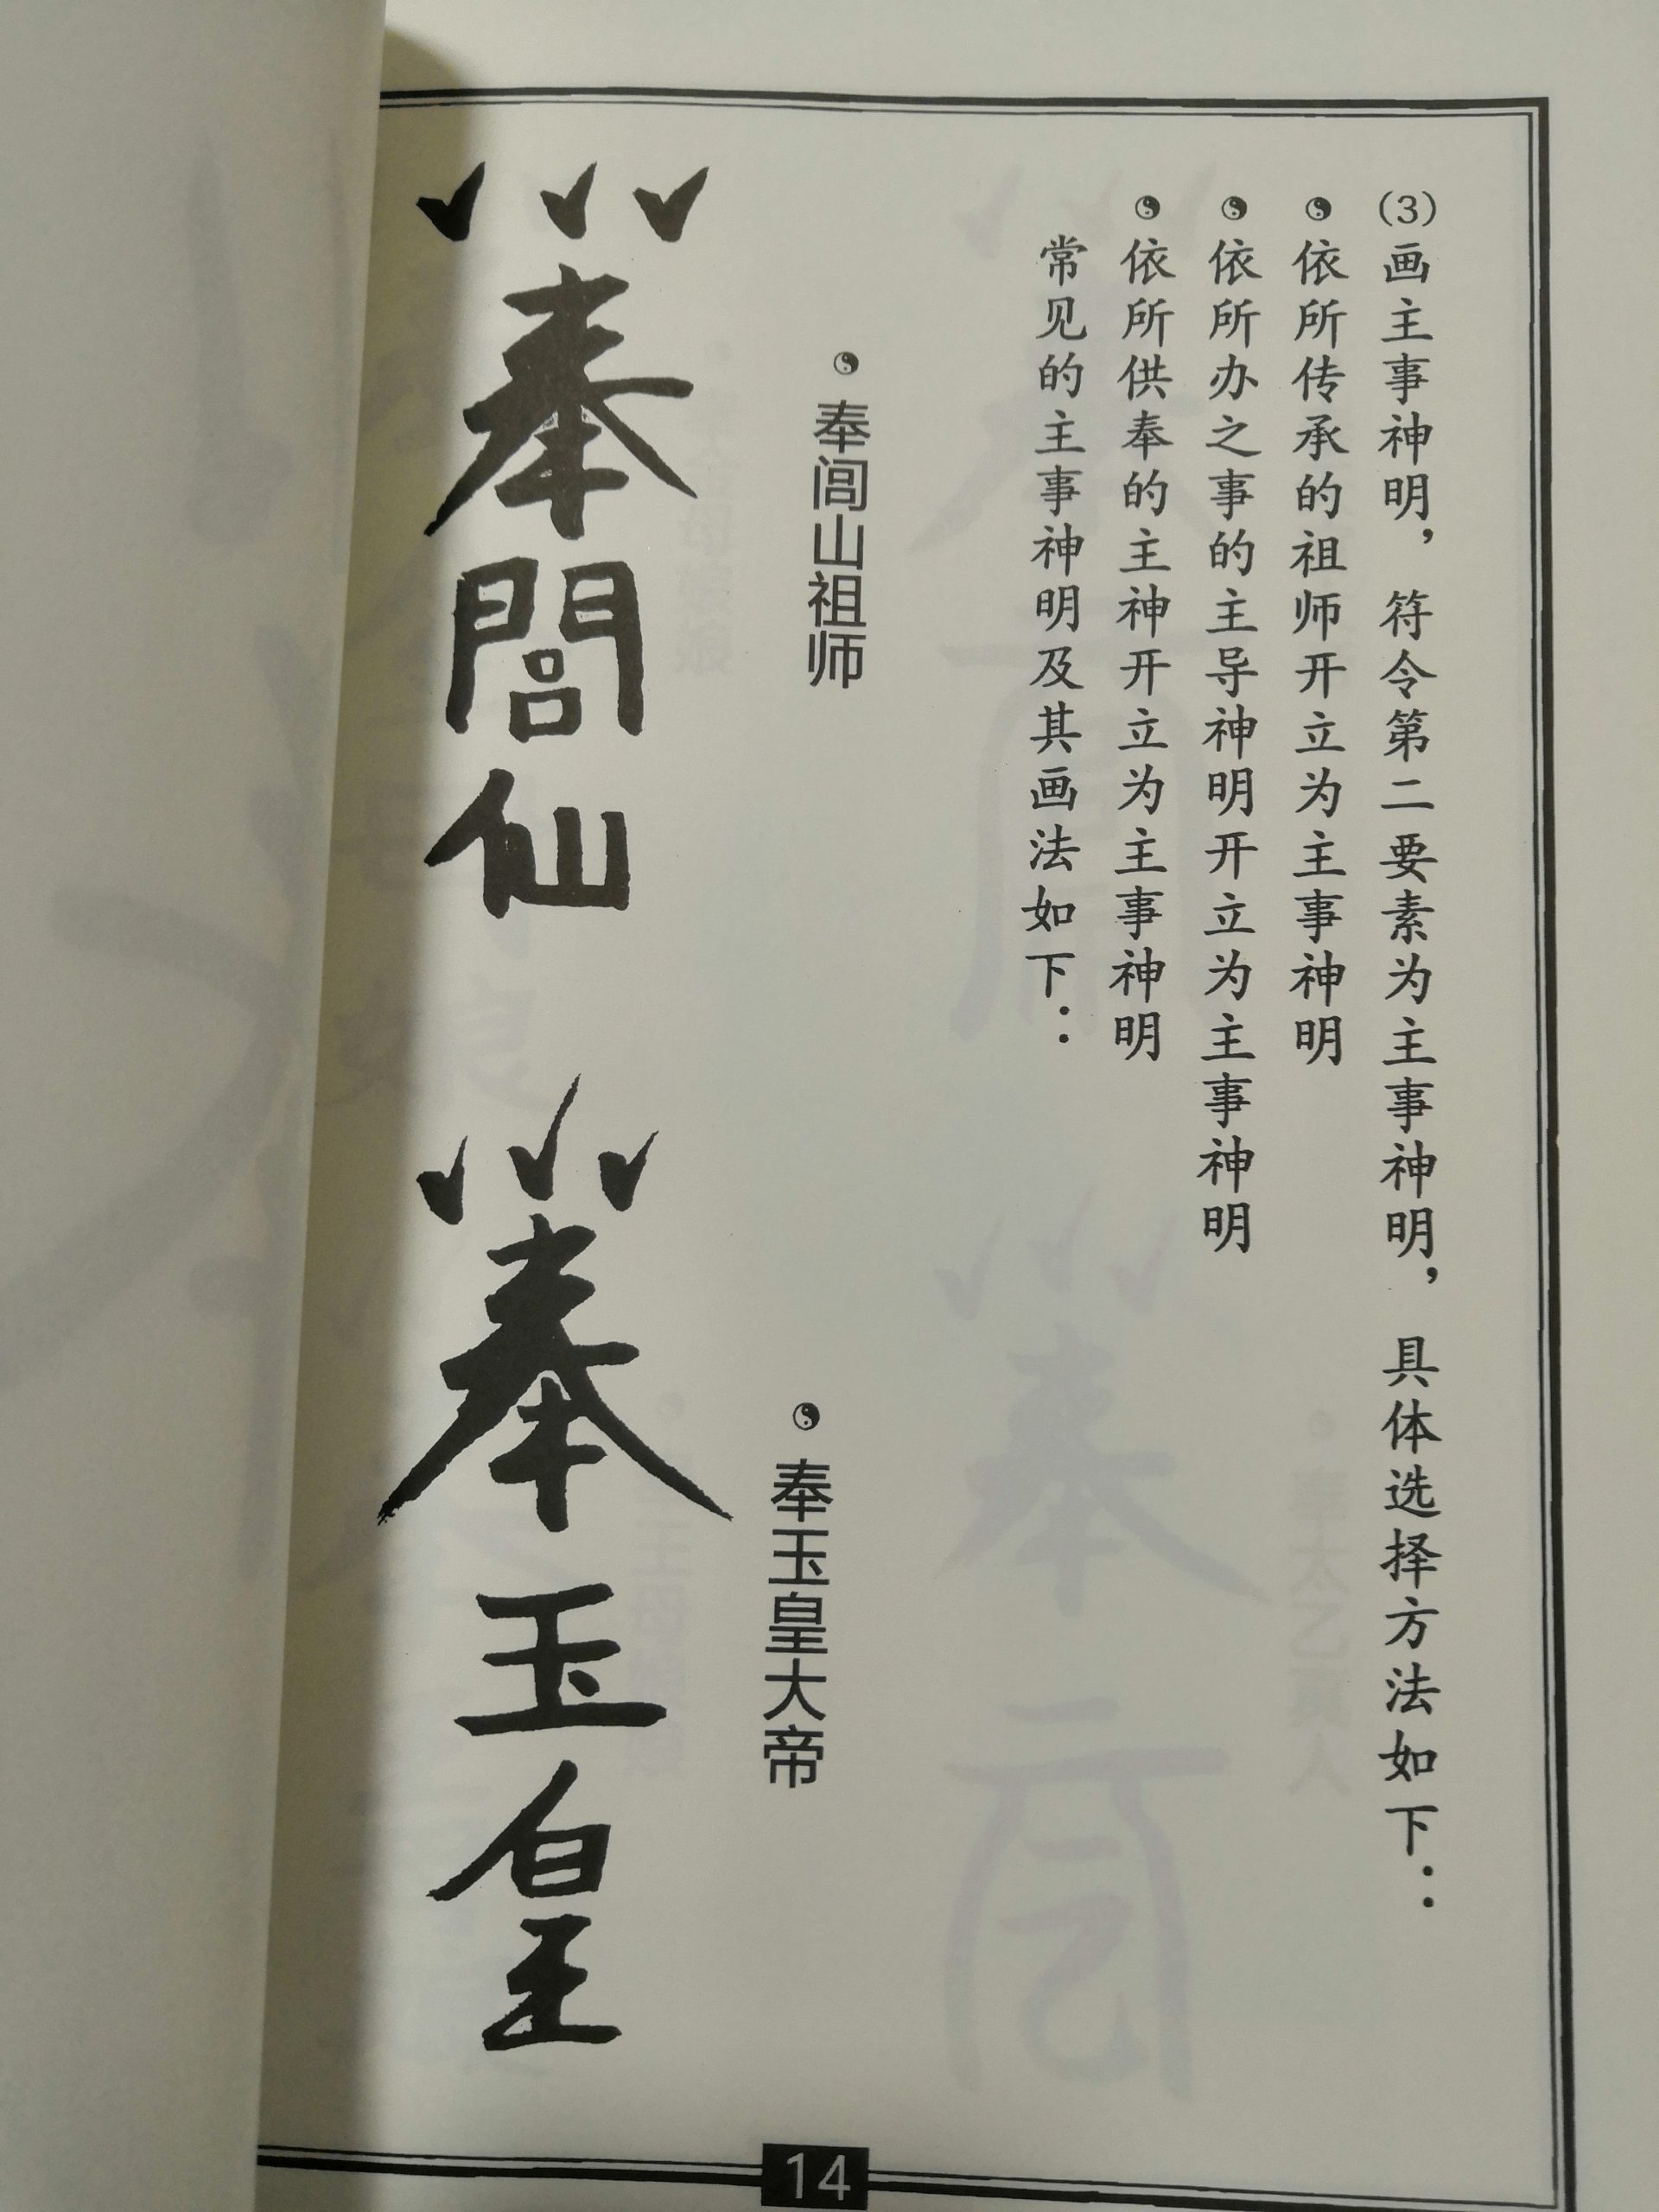 (3)画主事神明，符令第二要素为主事神明，具体选择方法如下：
依所传承的祖师开立为主事神明
依所办之事的主导神明开立为主事神明
依所供奉的主神开立为主事神明
常见的主事神明及其画法如下：
奉闾山祖师
奉閭仙
奉玉皇大帝
奉玉皇
14